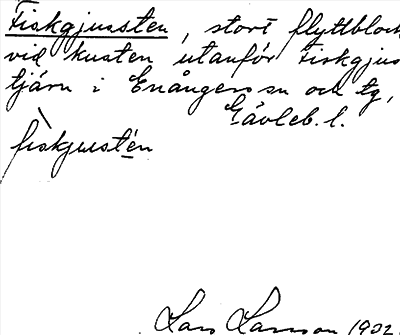 Fiskgjussten, stort flyttblock
vid kusten utanför Fiskgjus
tjärn i Enångers sn och tg,
Gävleb. l.
fiskjustén
Lars Larsson 1932.